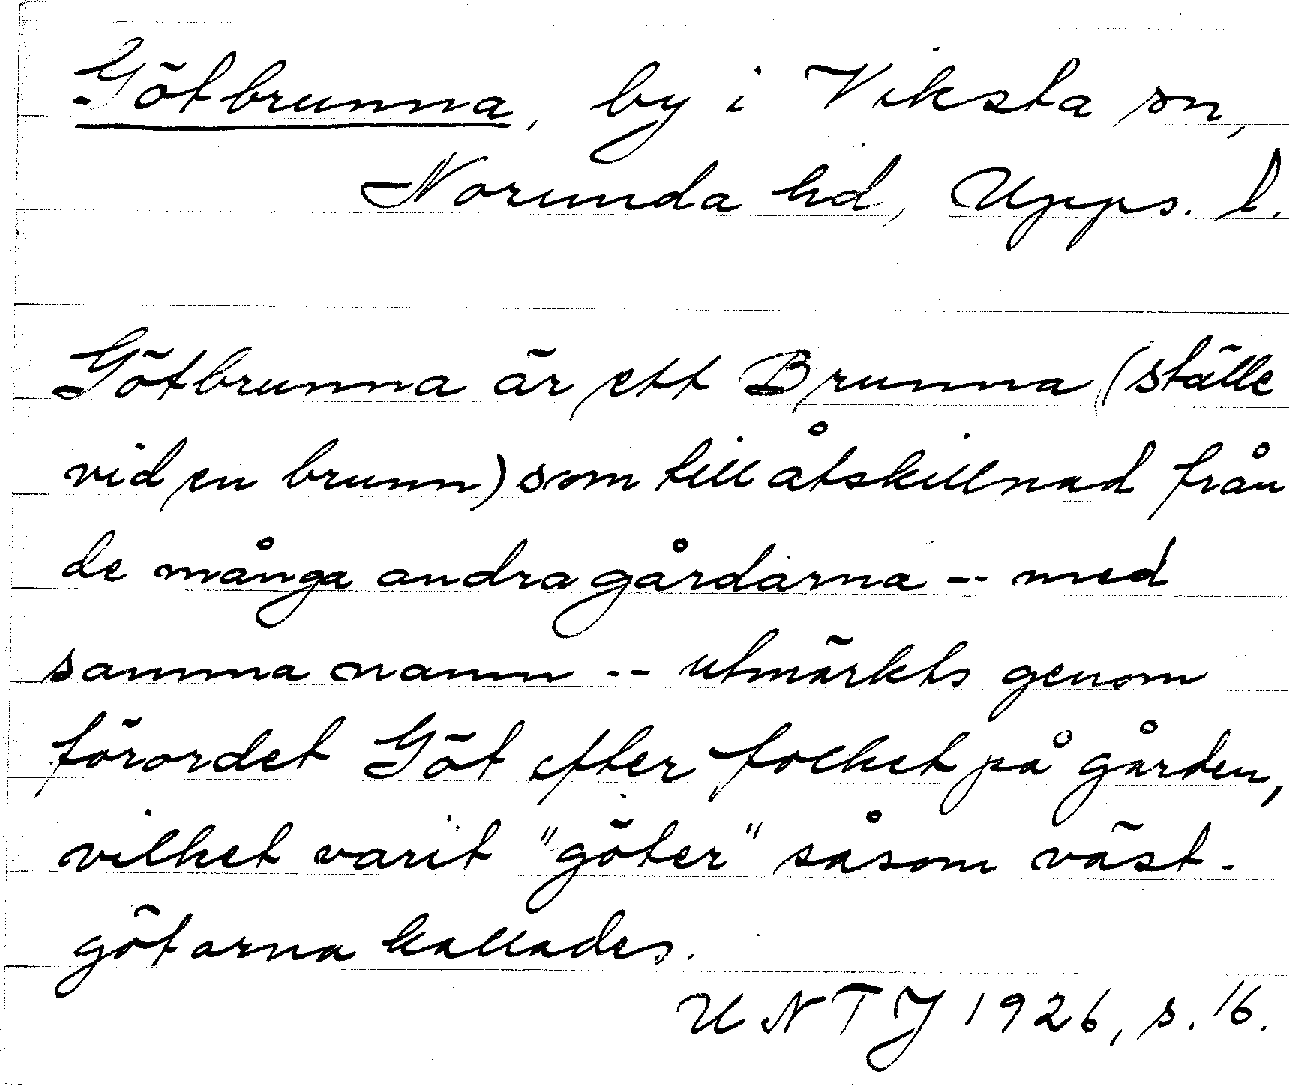 Götbrunna, by i Viksta sn,
Norunda hd, Upps. l.
Götbrunna är ett Brunna (ställe
vid en brunn) som till åtskillnad från
de många andra gårdarna -- med
samma namn -- utmärkts genom
förordet Göt efter folket på gården,
vilket varit "göter" såsom väst-
götarna kallades.
UNTJ 1926, s. 16.